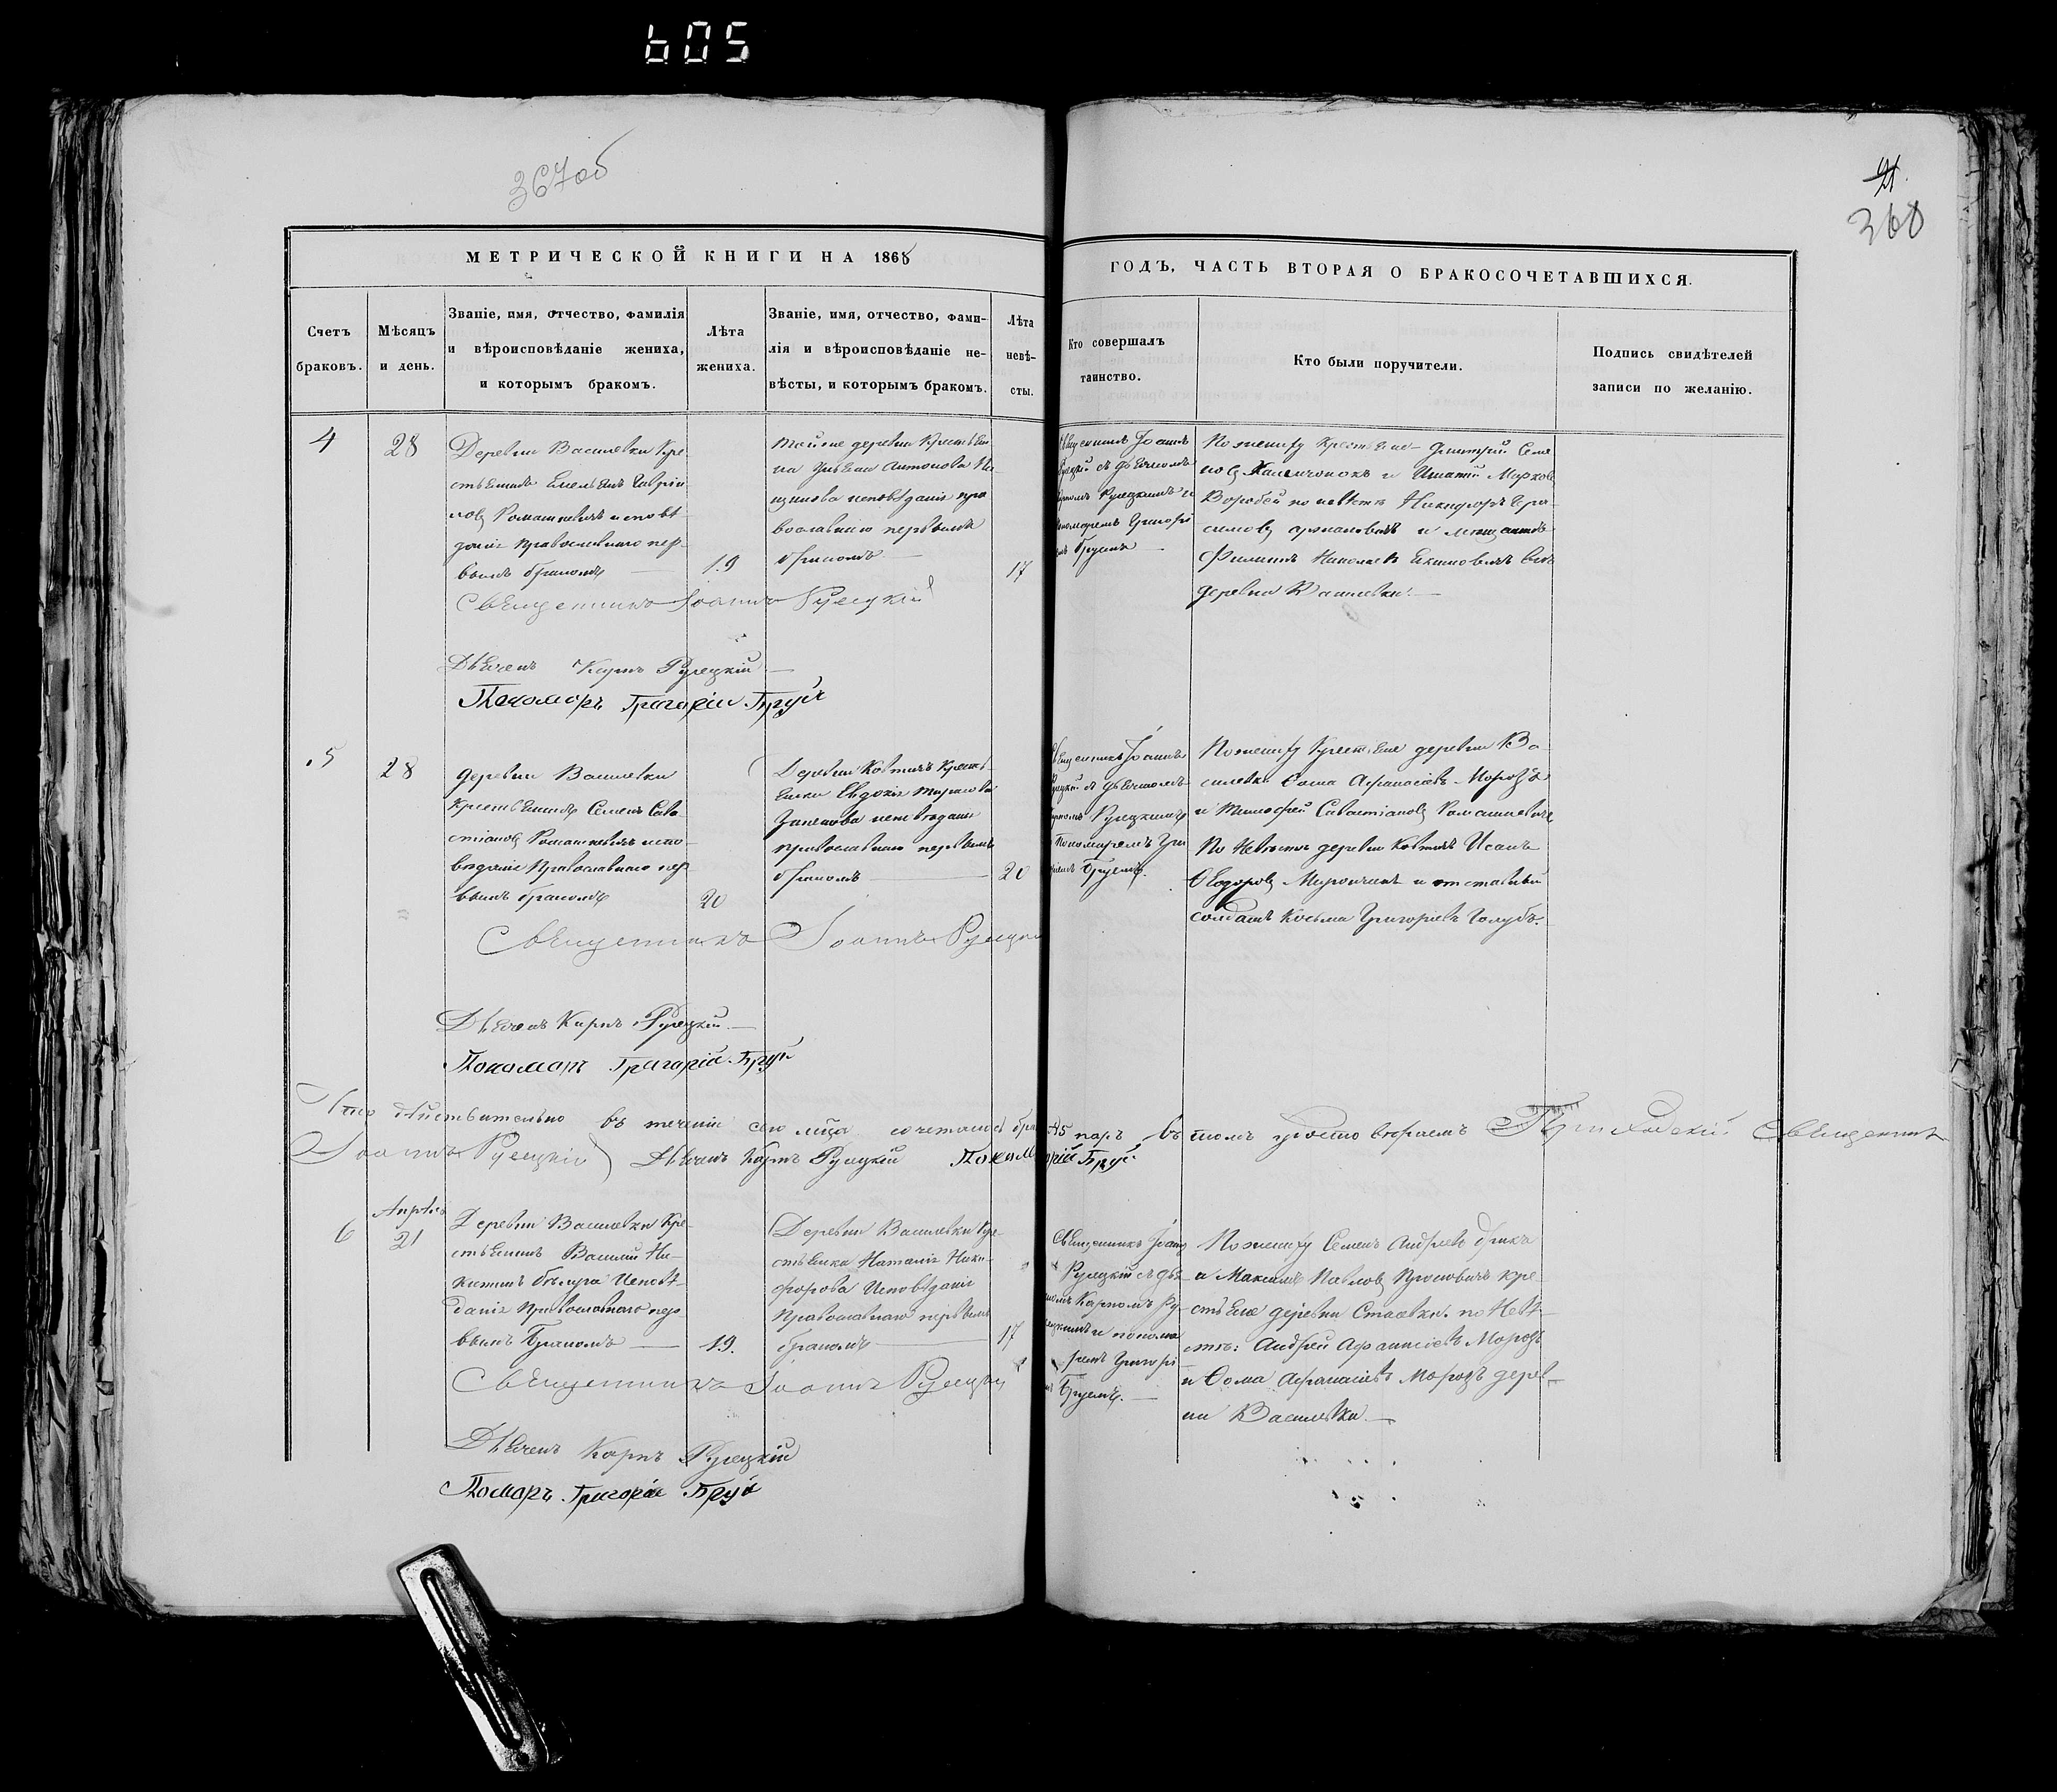 605
367об
21.
368
МЕТРИЧЕСКОЙ КНИГИ НА 1868
ГОДЪ, ЧАСТЬ ВТОРАЯ О БРАКОСОЧЕТАВШИХСЯ.
Счетъ
браковъ.
Мѣсяцъ
и день.
Званіе, имя, отчество, фамилія
и вѣроисповѣданіе жениха,
и которымъ бракомъ.
Лѣта
жениха.
Званіе, имя, отчество, фами-
лія и вѣроисповѣданіе не-
вѣсты, и которымъ бракомъ.
Лѣта
невѣ-
сты.
Кто совершалъ
таинство.
Кто были поручители.
Подпись свидѣтелей
записи по желанію.
4
28
Деревни Василевки Кре
стьянинъ Емельянъ Гаврiи
ловъ Ромашкевичъ исповѣ
данія православнаго пер-
вымъ бракомъ
19
тойже деревни крестьян
ка Ульяна Антонова
исповѣданія пра
вославнаго первымъ
бракомъ
17
Священникъ Іоаннъ
Рулецкій съ дьячкомъ
Карпомъ Рулецкимъ и
пономаремъ Григорі
емъ Бруемъ
По жениху крестьяне Дмитрій Семе
новъ и Игнатій Марковъ
Воробей по невѣстѣ Никифоръ Гера
симовъ и мѣщанинъ
Филиппъ Николаевъ всѣ
деревни Василевки.
Священникъ Іоаннъ Рулецкій
Дьячекъ Карпъ Рулецкій
Пономаръ Григорій Бруй
5
28
деревни Василевки
крестьянинъ Семенъ Сава
стіановъ Ромашкевичъ испо-
вѣданія Православнаго пер
вымъ бракомъ
20
Деревни Ковтичъ крест-
янка Евдокія Тарасова
исповѣданія
православнаго первымъ
бракомъ
20
Священникъ Іоаннъ
Рулецкій съ дьячкомъ
Карпомъ Рулецкимъ
Пономаремъ Гри
горіемъ Бруемъ.
По жениху крестьяне деревни Ва
силевки Ѳома Афанасіевъ Морозъ
и Тимофей Савастіановъ Ромашкевичъ
По Невѣстѣ деревни Ковтичъ Исакъ
Ѳеодоровъ и отставный
солдатъ Косьма Григоріевъ Голубъ.
Священникъ Іоаннъ Рулецкій
Дьячекъ Карпъ Рулецкій
Пономаръ Григорій Бруй
Что дѣйствительно въ теченіи сего мѣсяца сочеталось бракомъ 5 паръ въ томъ удостовѣряемъ Приходскій Священникъ
Іоаннъ Рулецкій Дьячекъ Карпъ Рулецкій Поном Григорій Бруй
6
Апрѣль
21
Деревни Василевки Кре-
стьянинъ Василій Ни-
китинъ Исповѣ-
данія Православнаго пер
вымъ Бракомъ
19.
Деревни Василевки Кре-
стьянка Наталія Ники-
форова Исповѣданія
Православнаго первымъ
бракомъ
17
Священникъ Іоаннъ
Рулецкій съ дьяч
комъ Карпомъ Ру-
лецкимъ и понома
ремъ Григорі
емъ Бруемъ.
По жениху Семенъ Андреевъ
и Максимъ Павловъ кре-
стьяне деревни Стаевки. по Невѣ-
стѣ: Андрей Афанасіевъ Морозъ
и Ѳома Афанасіевъ Морозъ дерев-
ни Василевки
Священникъ Іоаннъ Рулецкій
Дьячекъ Карпъ Рулецкій
Помаръ Григорій Бруй